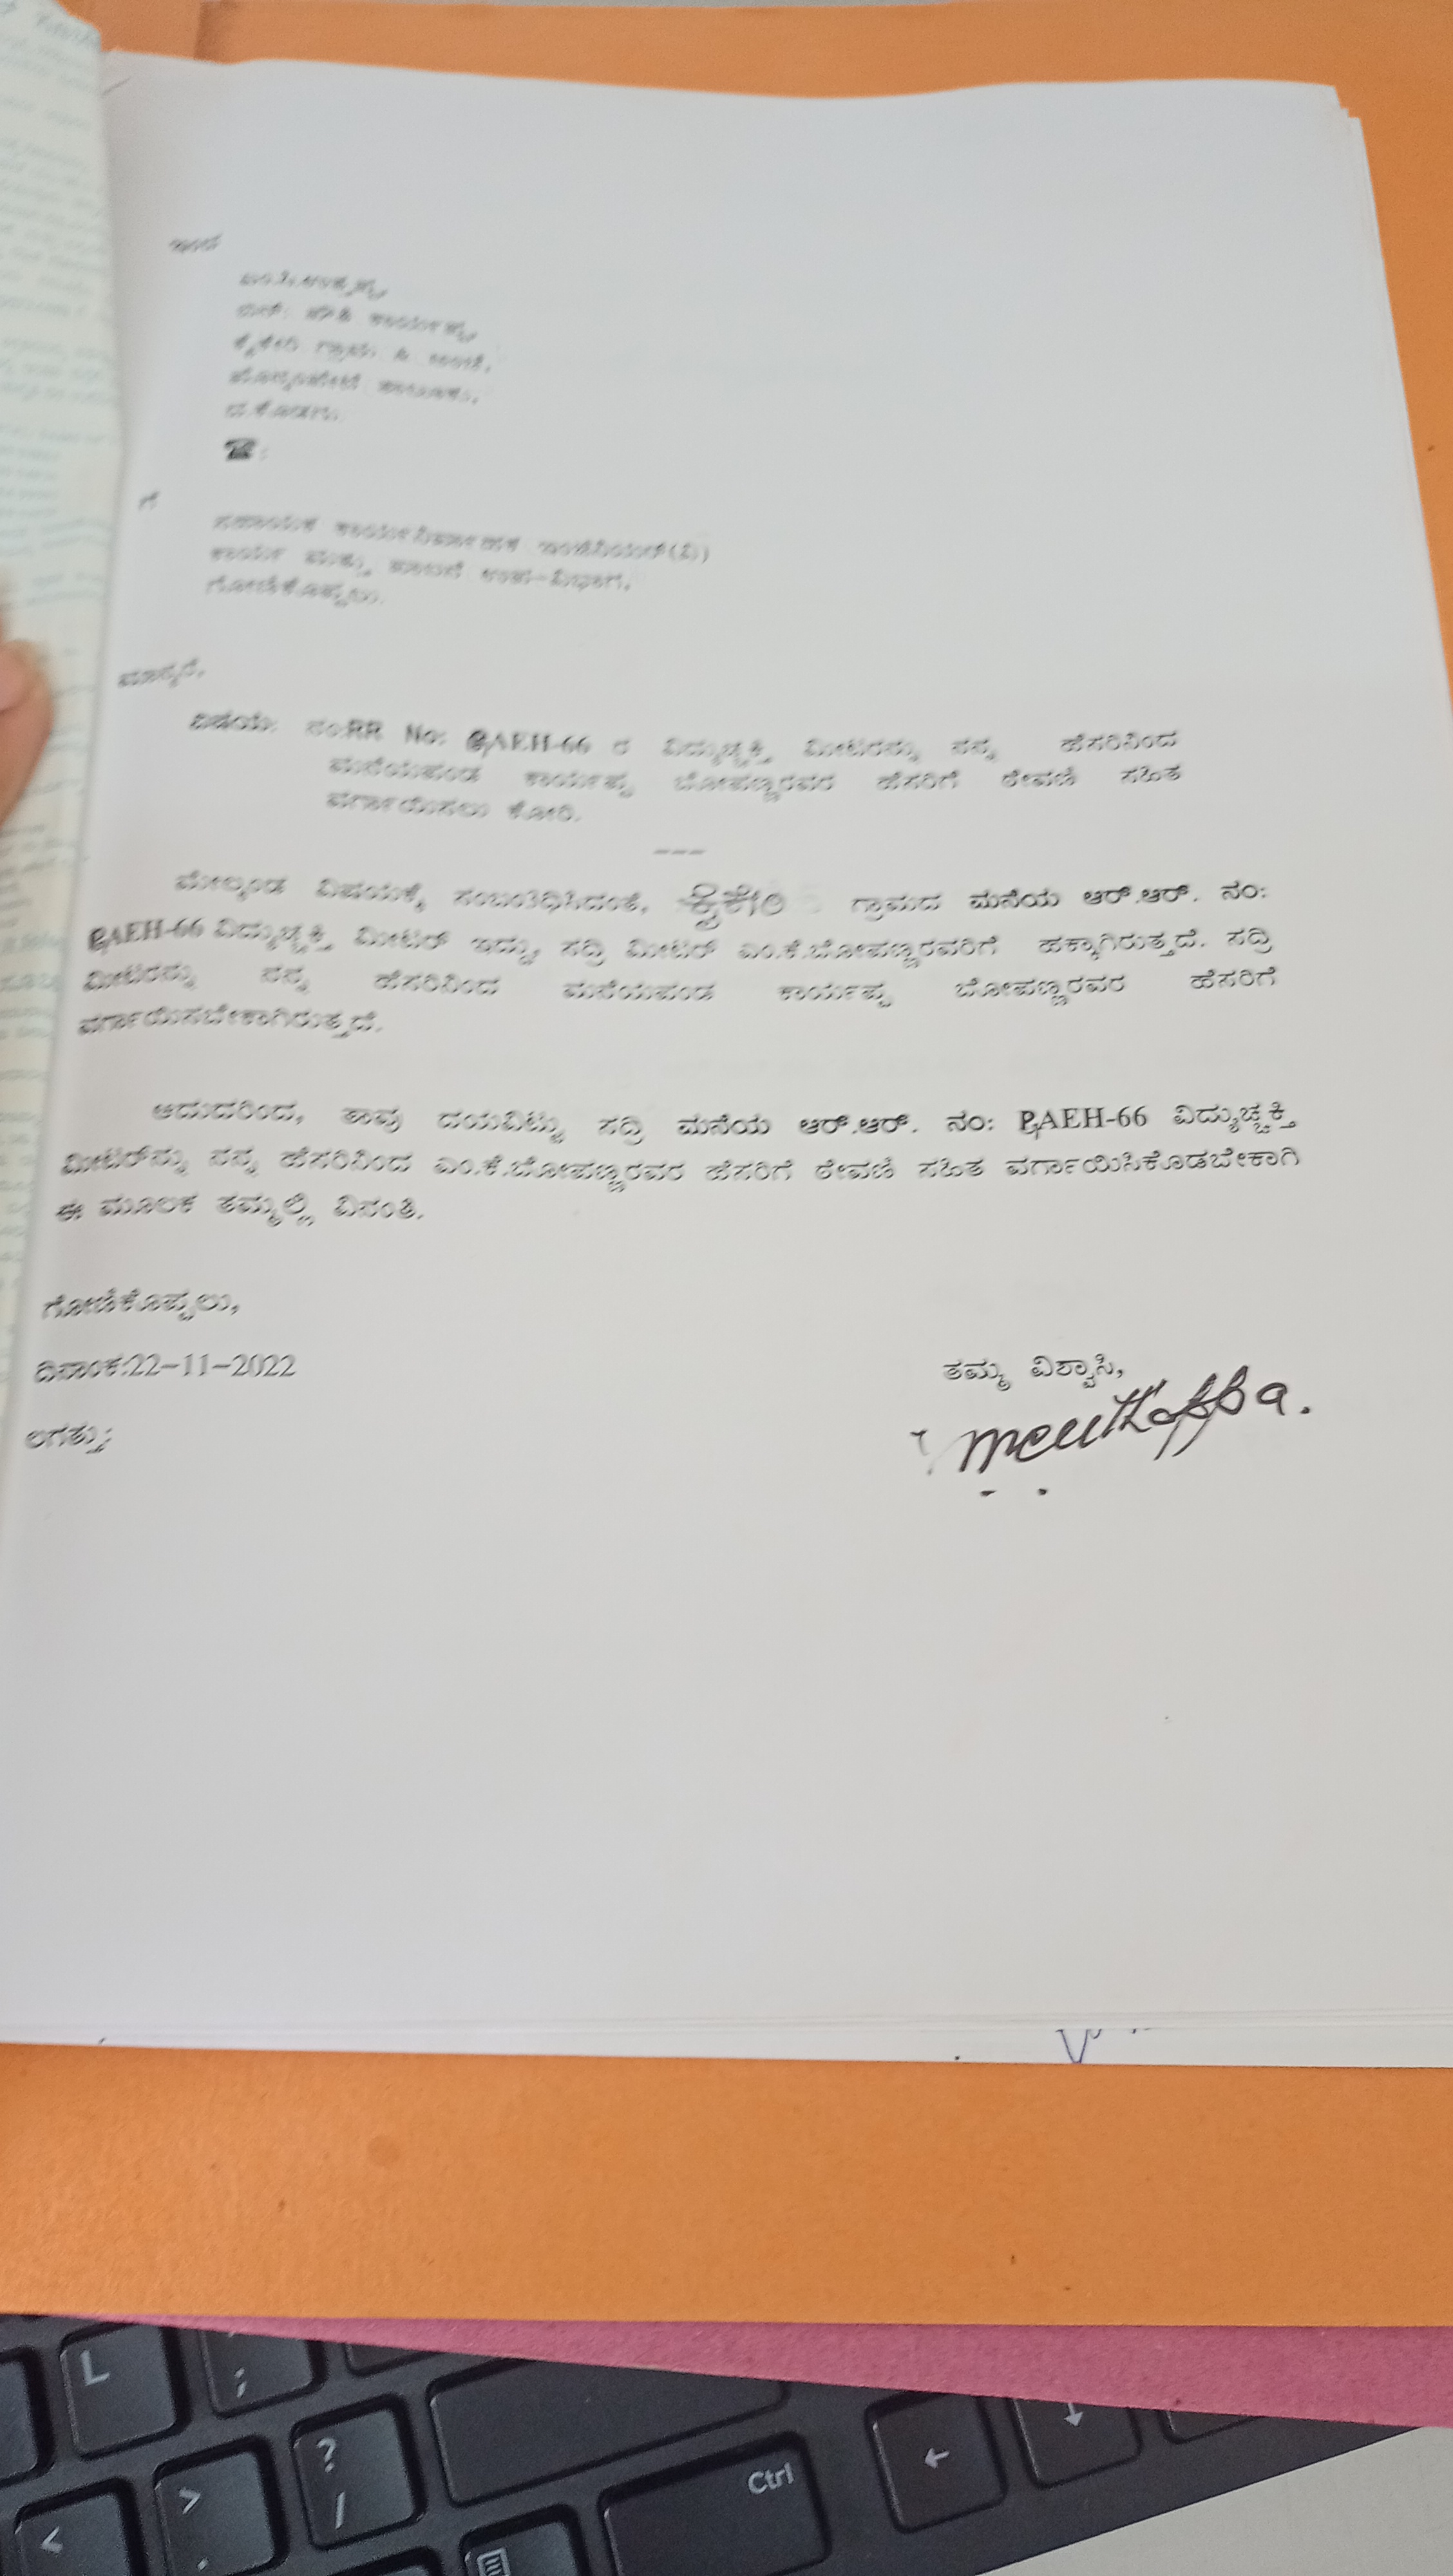 ಇಂದ
ಕೈಕೇರಿ ಗ್ರಾಮ & ಅಂಚೆ,
ಪೊನ್ನಂಪೇಟೆ ತಾಲೂಕು,
ದ.ಕೊಡಗು.
☎:
ಗೆ
ಸಹಾಯಕ ಕಾರ್ಯನಿರ್ವಾಹಕ ಇಂಜಿನಿಯರ್(ವಿ)
ಕಾರ್ಯ ಮತ್ತು ಪಾಲನೆ ಉಪ-ವಿಭಾಗ,
ಗೋಣಿಕೊಪ್ಪಲು.
ಮಾನ್ಯರೆ,
ವಿಷಯ: ಸಂ:RR No: AEH-66 ರ ವಿದ್ಯುಚ್ಛಕ್ತಿ ಮೀಟರನ್ನು ನನ್ನ ಹೆಸರಿನಿಂದ
ಮನೆಯಪಂಡ ಕಾರ್ಯಪ್ಪ ಬೋಪಣ್ಣರವರ ಹೆಸರಿಗೆ ಠೇವಣಿ ಸಹಿತ
ವರ್ಗಾಯಿಸಲು ಕೋರಿ.
---
ಮೇಲ್ಕಂಡ ವಿಷಯಕ್ಕೆ ಸಂಬಂಧಿಸಿದಂತೆ, ಕೈಕೇರಿ ಗ್ರಾಮದ ಮನೆಯ ಆರ್.ಆರ್. ನಂ:
AEH-66 ವಿದ್ಯುಚ್ಛಕ್ತಿ ಮೀಟರ್ ಇದ್ದು, ಸದ್ರಿ ಮೀಟರ್ ಎಂ.ಕೆ.ಬೋಪಣ್ಣರವರಿಗೆ ಹಕ್ಕಾಗಿರುತ್ತದೆ. ಸದ್ರಿ
ಮೀಟರನ್ನು ನನ್ನ ಹೆಸರಿನಿಂದ ಮನೆಯಪಂಡ ಕಾರ್ಯಪ್ಪ ಬೋಪಣ್ಣರವರ ಹೆಸರಿಗೆ
ವರ್ಗಾಯಿಸಬೇಕಾಗಿರುತ್ತದೆ.
ಆದುದರಿಂದ, ತಾವು ದಯವಿಟ್ಟು ಸದ್ರಿ ಮನೆಯ ಆರ್.ಆರ್. ನಂ: AEH-66 ವಿದ್ಯುಚ್ಛಕ್ತಿ
ಮೀಟರ್‌ನ್ನು ನನ್ನ ಹೆಸರಿನಿಂದ ಎಂ.ಕೆ.ಬೋಪಣ್ಣರವರ ಹೆಸರಿಗೆ ಠೇವಣಿ ಸಹಿತ ವರ್ಗಾಯಿಸಿಕೊಡಬೇಕಾಗಿ
ಈ ಮೂಲಕ ತಮ್ಮಲ್ಲಿ ವಿನಂತಿ.
ಗೋಣಿಕೊಪ್ಪಲು,
ದಿನಾಂಕ:22-11-2022
ತಮ್ಮ ವಿಶ್ವಾಸಿ,
ಲಗತ್ತು:
L
;
?
/
>
.
<
Ctrl
←
↓